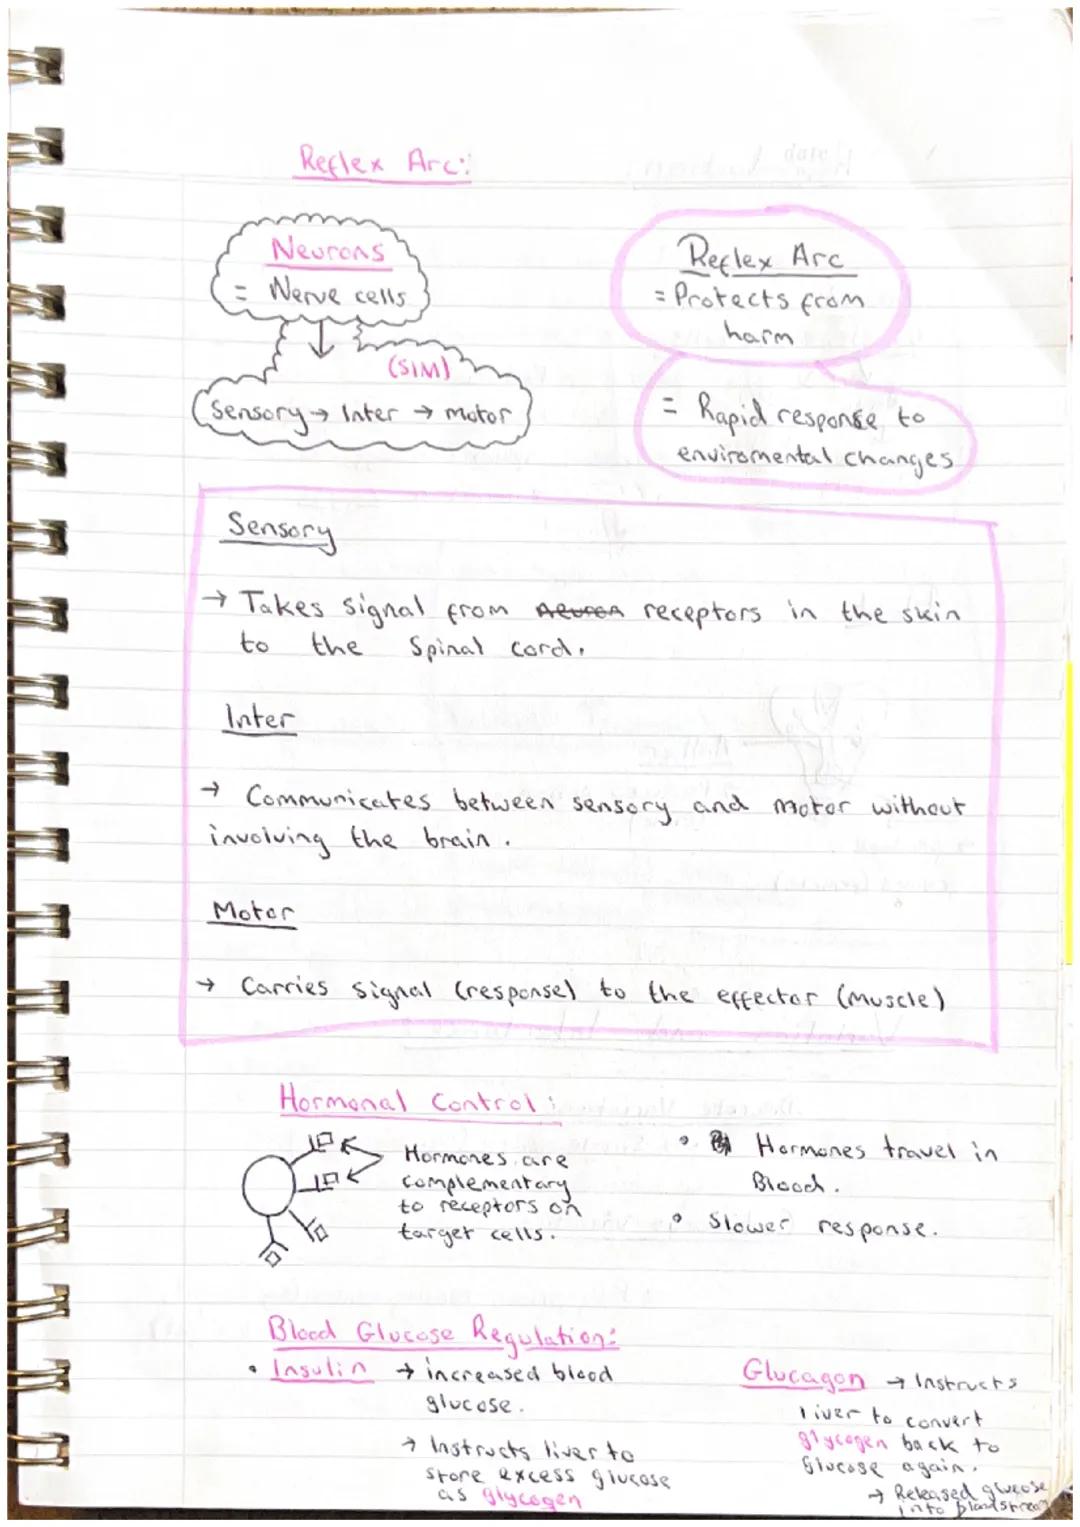 Reflex Arc:
Neurons
= Nerve cells
(SIM)
Sensory → Inter → motor
Reflex Arc
= Protects from
harm
= Rapid response to
enviromental changes
Sensory
→ Takes signal from receptors in the skin
to the Spinal cord.
Inter
→ Communicates between sensory and motor without
involving the brain.
Motor
→ Carries signal (response) to the effector (muscle)
Hormonal Control:
Hormones are
complementary
to receptors on
target cells.
• Hormones travel in
Blood.
• Slower response.
Blood Glucose Regulation:
• Insulin → increased blood
glucose.
→ Instructs liver to
store excess glucose
as glycogen
Glucagon → Instructs
liver to convert
glycogen back to
glucose again.
→ Released glucose
into bloodstream